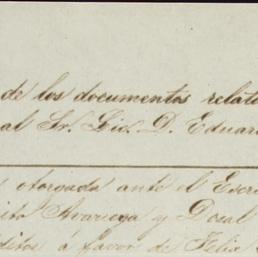 de los documentos relat
al Sr. Lic. D. Eduar
otorgada ante el Escri
y Dosal
ditos á favor de Felix